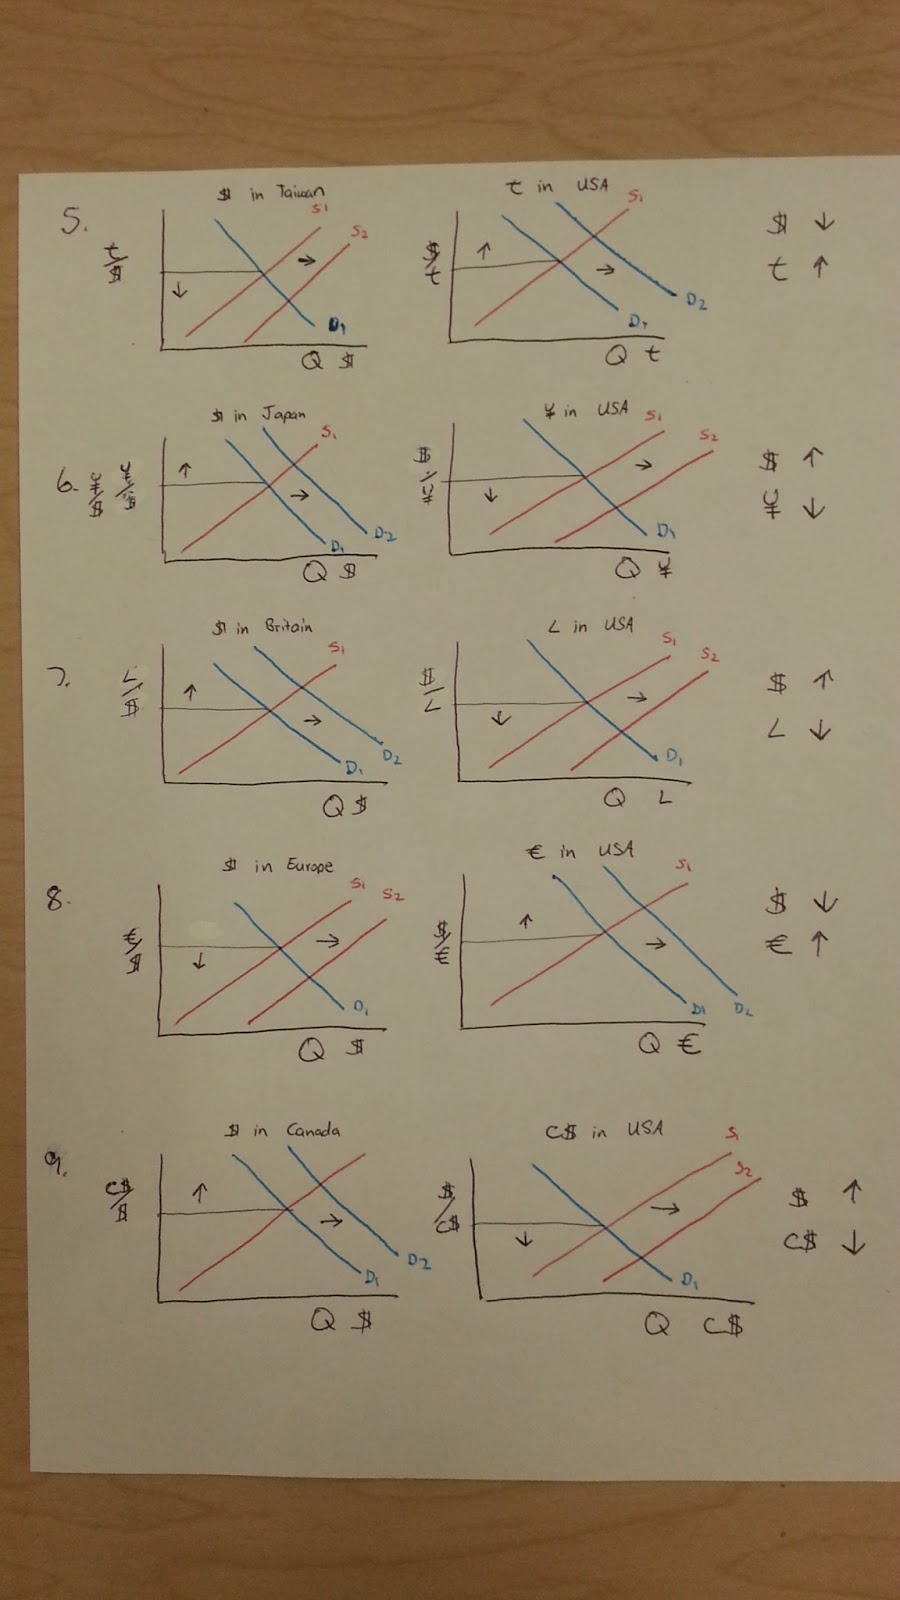 5.
$ in Taiwan
t/$
S1
S2
D1
Q $
t in USA
$/t
S1
D1
D2
Q t
$ ↓
t ↑
6.
¥/$ ¥/$
$ in Japan
S1
D1
D2
Q $
¥ in USA
$/¥
S1
S2
D1
Q ¥
$ ↑
¥ ↓
7.
$ in Britain
L/$
S1
D1
D2
Q $
L in USA
$/L
S1
S2
D1
Q L
$ ↑
L ↓
8.
$ in Europe
€/$
S1
S2
D1
Q $
€ in USA
$/€
S1
D1
D2
Q €
$ ↓
€ ↑
9.
$ in Canada
C$/$
D1
D2
Q $
C$ in USA
$/C$
S1
S2
D1
Q C$
$ ↑
C$ ↓